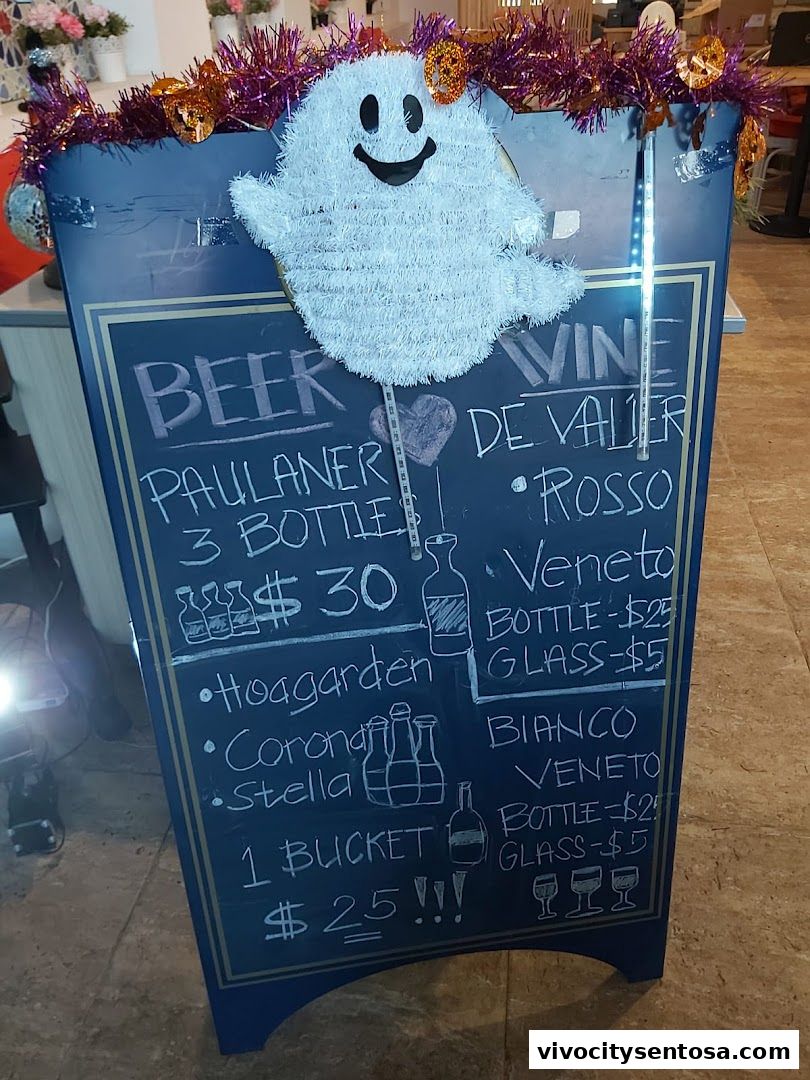 BEER
PAULANER
3 BOTTLES
$30
• Hoagarden
• Corona
• Stella
1 BUCKET
$25 !!!
WINE
DE VALIER
• ROSSO
• Veneto
BOTTLE-$25
GLASS-$5
BIANCO
VENETO
BOTTLE-$25
GLASS-$5
vivocitysentosa.com